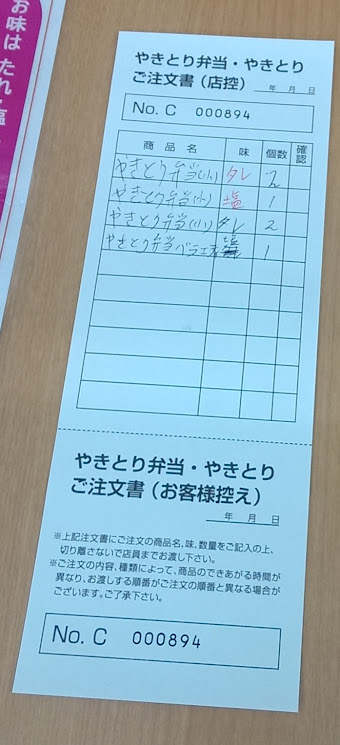 お味は たれ・塩
やきとり弁当・やきとり
ご注文書（店控） 年 月 日
No. C 000894
商品名 味 個数 確認
やきとり弁当(小) タレ 2
やきとり弁当(小) 塩 1
やきとり弁当(小) タレ 2
やきとり弁当バラエティ 塩 1
やきとり弁当・やきとり
ご注文書（お客様控え）
年 月 日
※上記注文書にご注文の商品名、味、数量をご記入の上、
切り離さないで店員までお渡し下さい。
※ご注文の内容、種類によって、商品のできあがる時間が
異なり、お渡しする順番がご注文の順番と異なる場合が
ございます。ご了承下さい。
No. C 000894